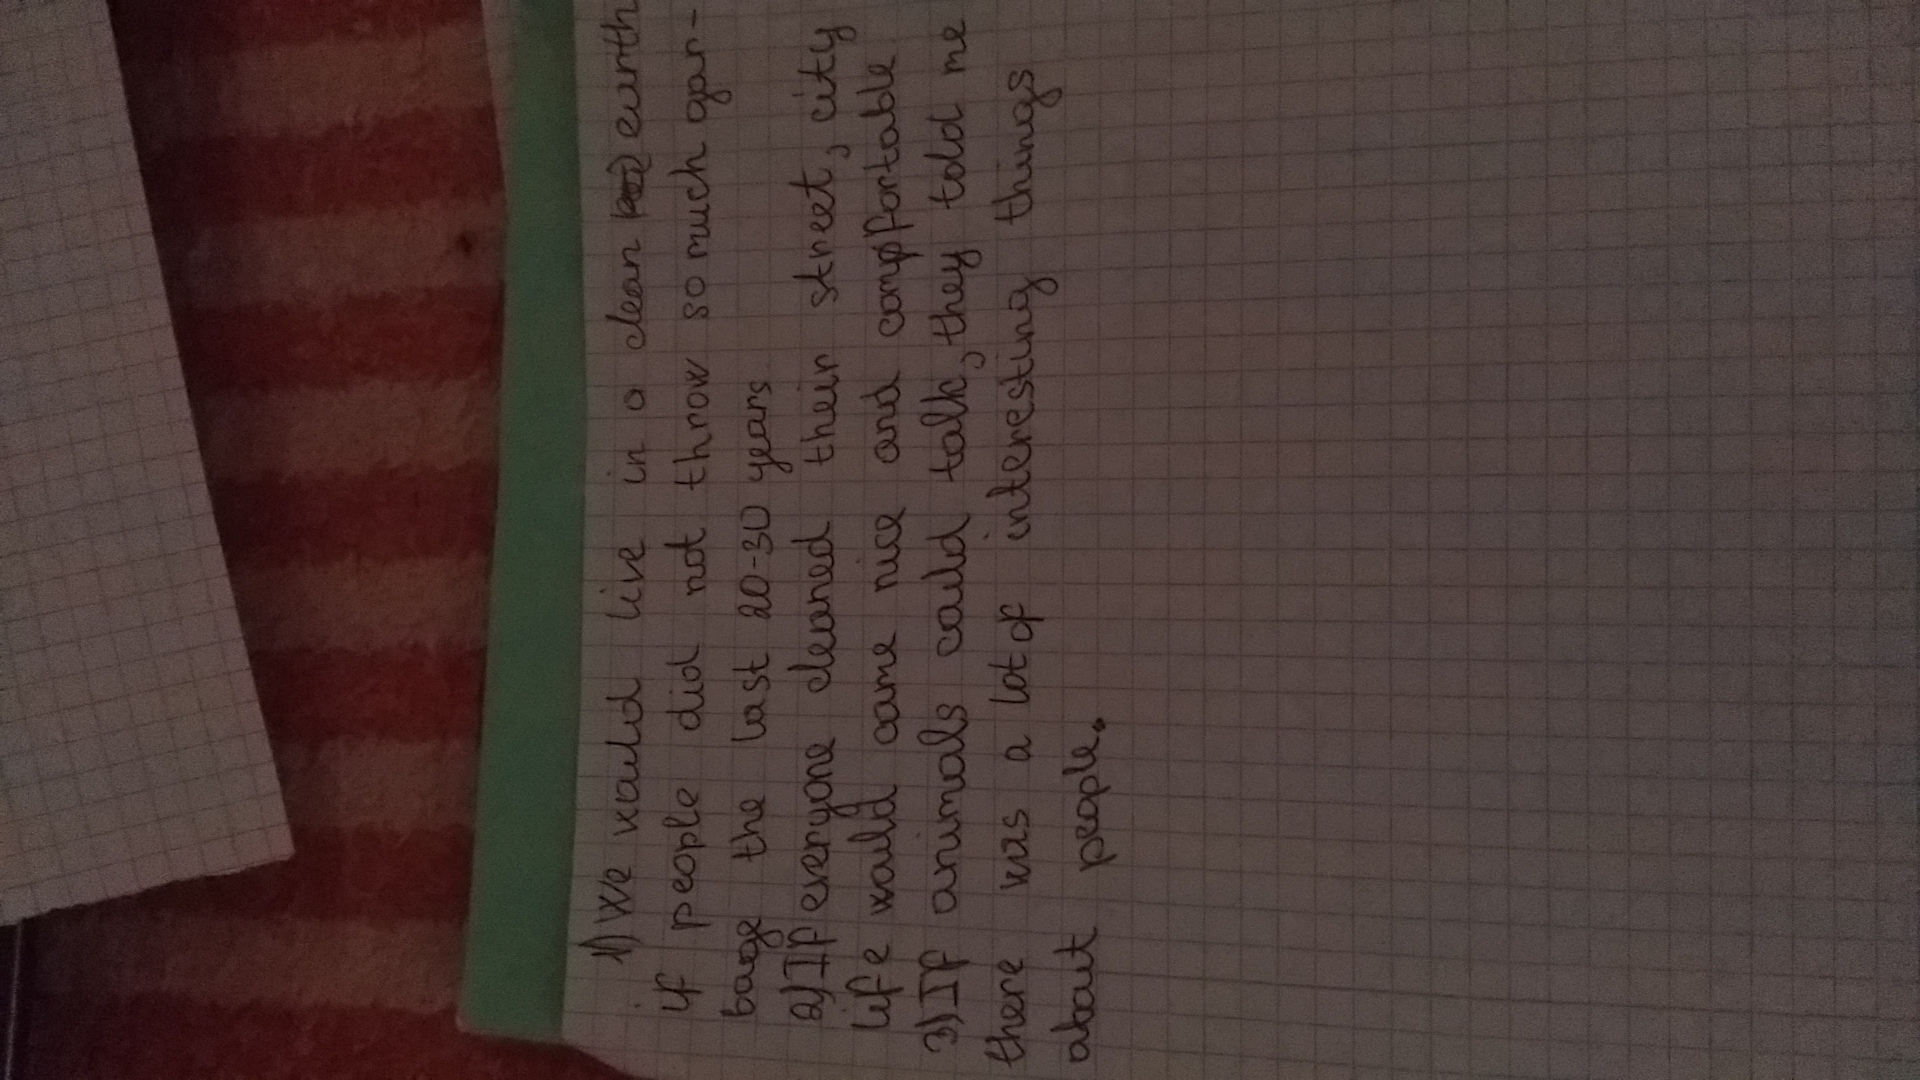 1) We would live in a clean earth
if people did not throw so much gar-
bage the last 20-30 years
2) If everyone cleaned their street, city
life would came nice and comfortable
3) If animals could talk, they told me
there was a lot of interesting things
about people.